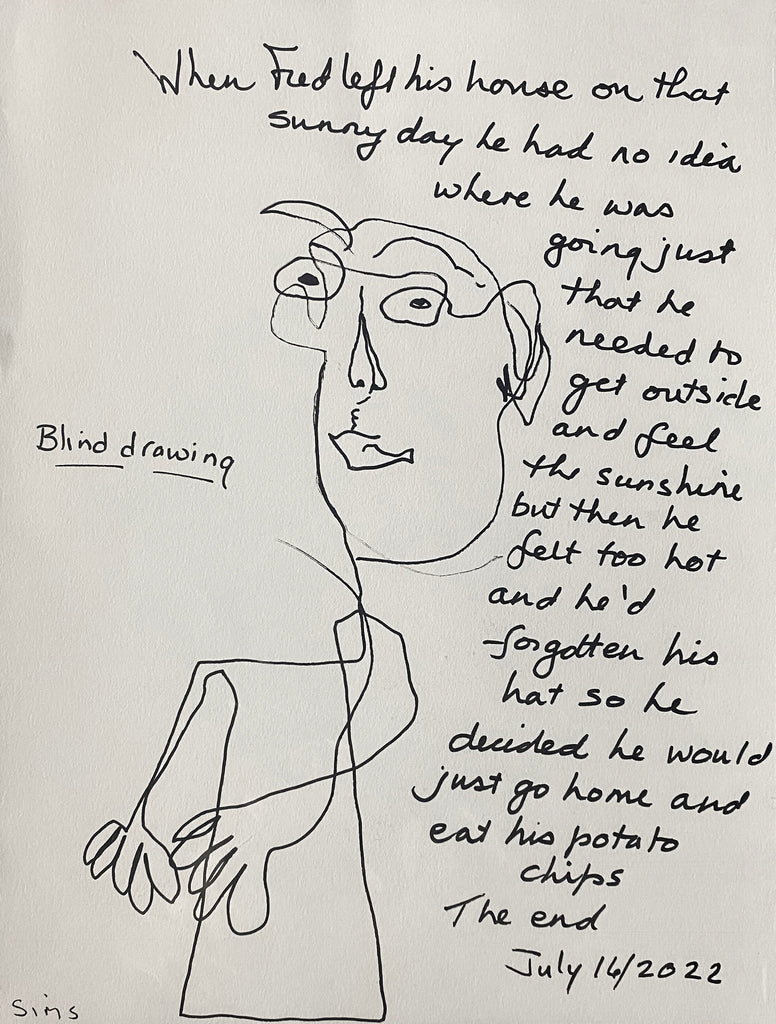 When Fred left his house on that
sunny day he had no idea
where he was
going just
that he
needed to
get outside
and feel
the sunshine
but then he
felt too hot
and he'd
forgotten his
hat so he
decided he would
just go home and
eat his potato
chips
The end
July 16/2022
Blind drawing
Sims